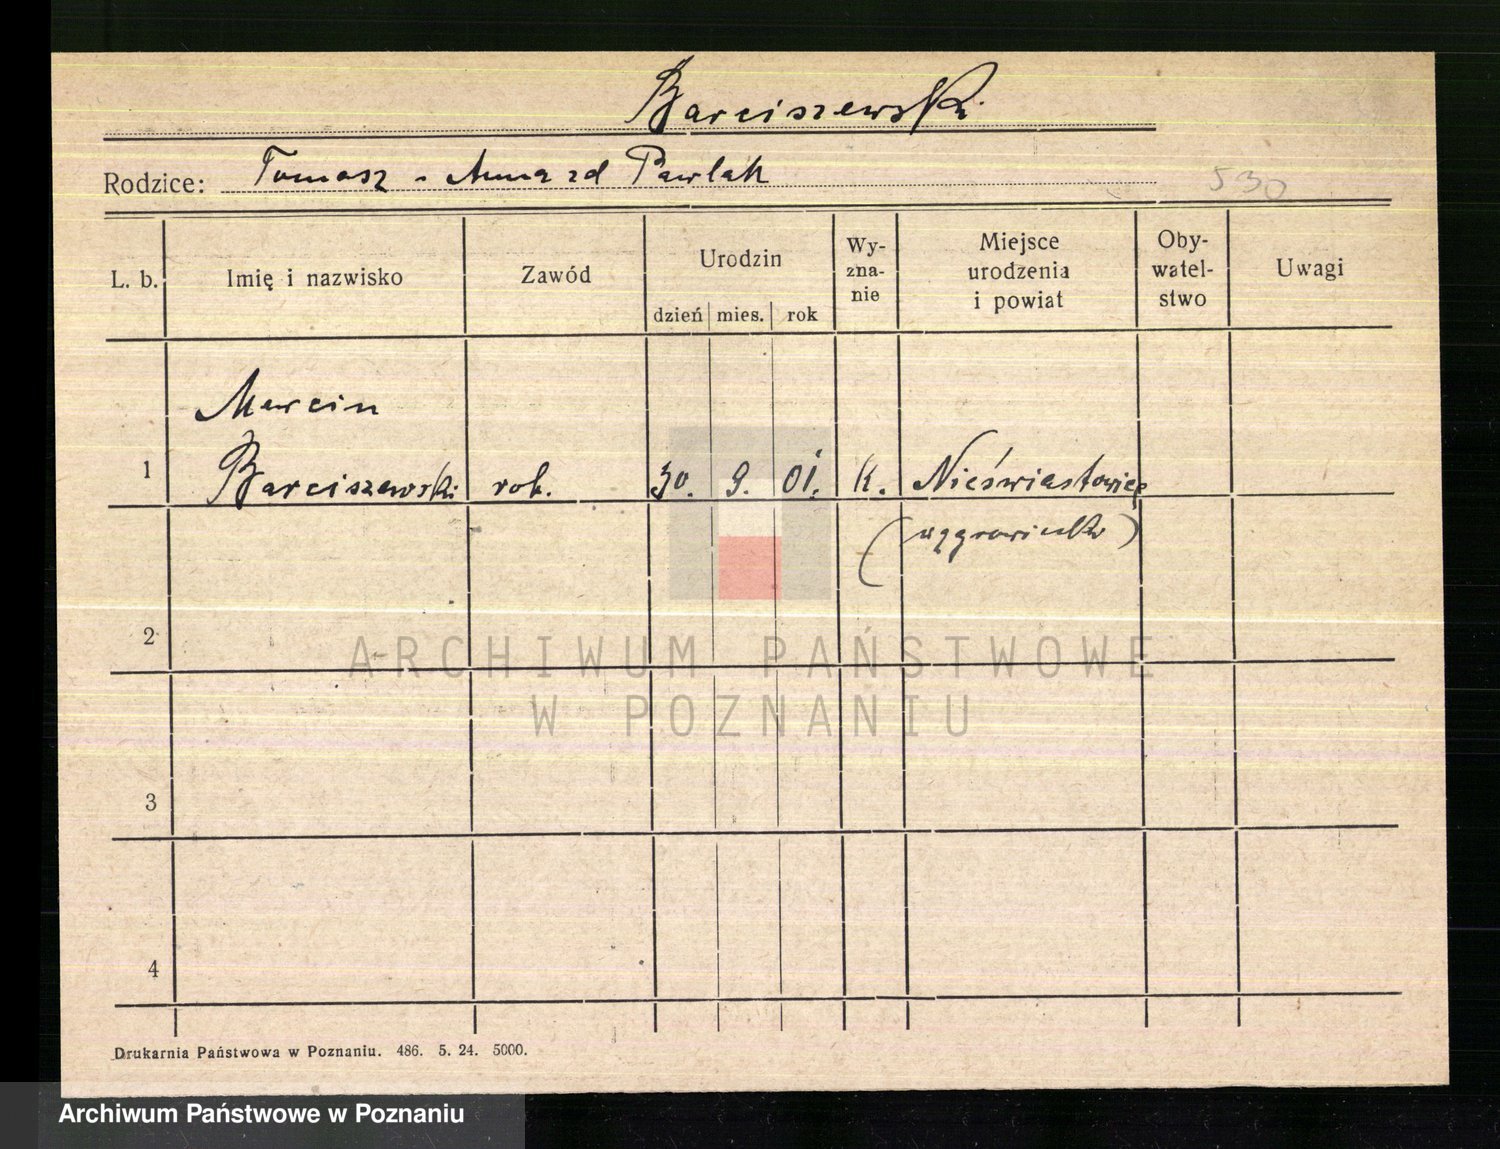 Barciszewski
Rodzice: Tomasz - Anna zd Pawlak
530
L. b. Imię i nazwisko Zawód Urodzin dzień mies. rok Wy-zna-nie Miejsce urodzenia i powiat Oby-watel-stwo Uwagi
Marcin
1 Barciszewski rob. 30. 9. 01. k. Nieświastowice
(wągrowiecki)
2
ARCHIWUM PAŃSTWOWE
W POZNANIU
3
4
Drukarnia Państwowa w Poznaniu. 486. 5. 24. 5000.
Archiwum Państwowe w Poznaniu